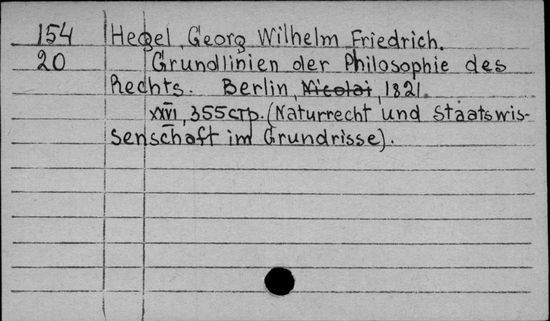 154 Hegel, Georg Wilhelm Friedrich.
20 Grundlinien der Philosophie des
Rechts. Berlin, Nicolai, 1821.
XXVI, 355 стр. (Naturrecht und Staatswis-
senschaft im Grundrisse).